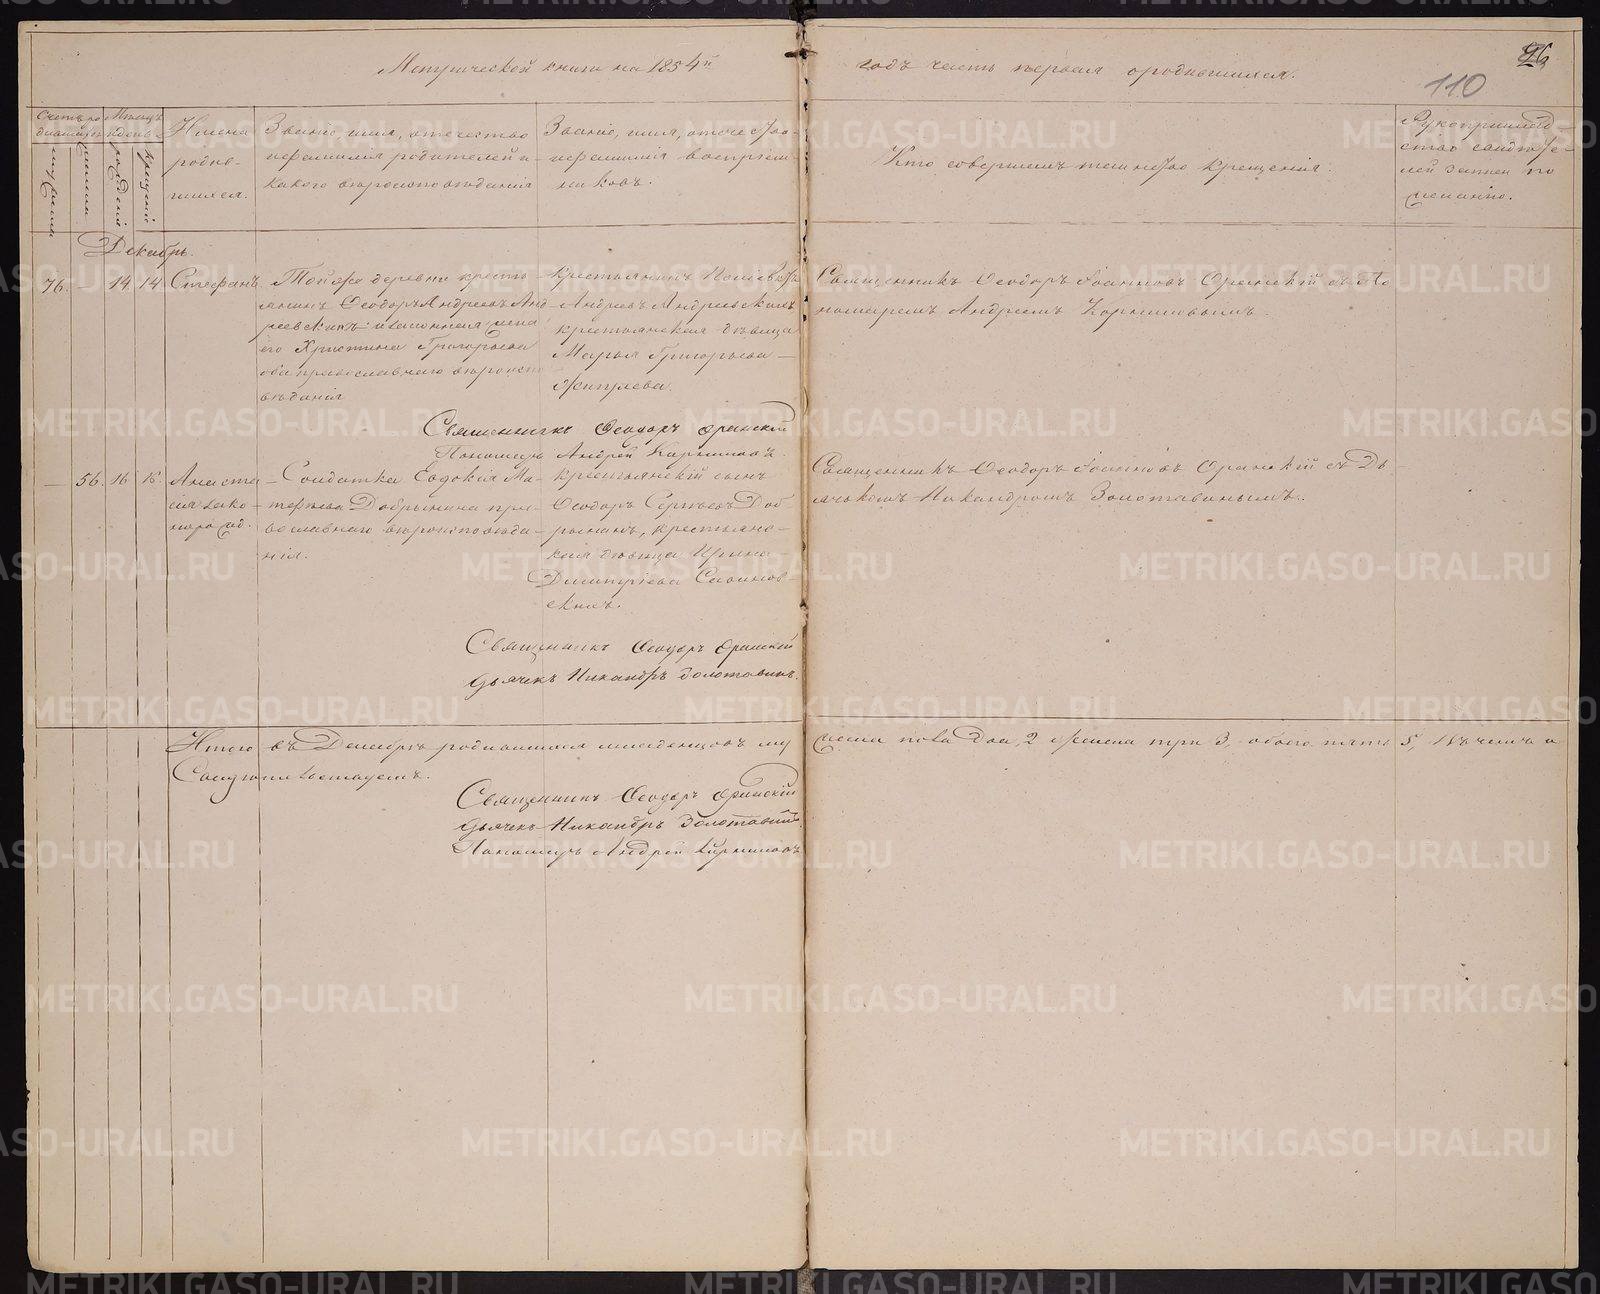 Метрической книги на 1854й годъ часть первая о родившихся.
110
Счетъ родившихся
Мѣсяцъ и день
мужеска
женска
рожденія
крещенія
Имена
родив-
шихся.
Званіе, имя, отечество
и фамилія родителей и
какого вѣроисповѣданія
Званіе, имя, отечество
и фамилія воспріем-
никовъ.
Кто совершалъ таинство крещенія.
Рукоприклад-
ство свидѣте-
лей записи по
желанію.
Декабрь.
76. — 14 14
Стефанъ
Той же деревни кресть-
янинъ Ѳеодоръ Андреевъ Анд-
реевскихъ и законная жена
его Христина Григорьева
оба православнаго вѣроиспо-
вѣданія
крестьянинъ
Андреевъ Андреевскихъ
крестьянская дѣвица
Марья Григорьева —
Священникъ Ѳеодоръ Іоанновъ Оранскій съ По-
номаремъ Андреемъ
Священникъ Ѳеодоръ Оранскій
Пономарь Андрей
— 56. 16 16.
Анаста-
сія незако-
норожд.
Солдатка Евдокія Ма-
твѣева Добрынина пра-
вославнаго вѣроисповѣда-
нія.
крестьянскій сынъ
Ѳеодоръ Сергѣевъ Доб-
рынинъ, крестьянс-
кая дѣвица Ирина
Димитріева Савинов-
скихъ.
Священникъ Ѳеодоръ Іоанновъ Оранскій съ Дь-
ячкомъ Никандромъ Золотавинымъ.
Священникъ Ѳеодоръ Оранскій
Дьячекъ Никандръ Золотавинъ.
Итого въ Декабрѣ родившихся младенцовъ му-
жеска пола два, 2 женска три 3, обоего пять 5,
Священникъ Ѳеодоръ Оранскій
Дьячекъ Никандръ Золотавинъ
Пономарь Андрей
METRIKI.GASO-URAL.RU